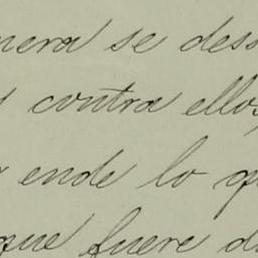 nera se des
contra ellos,
ende lo q
que fuere d